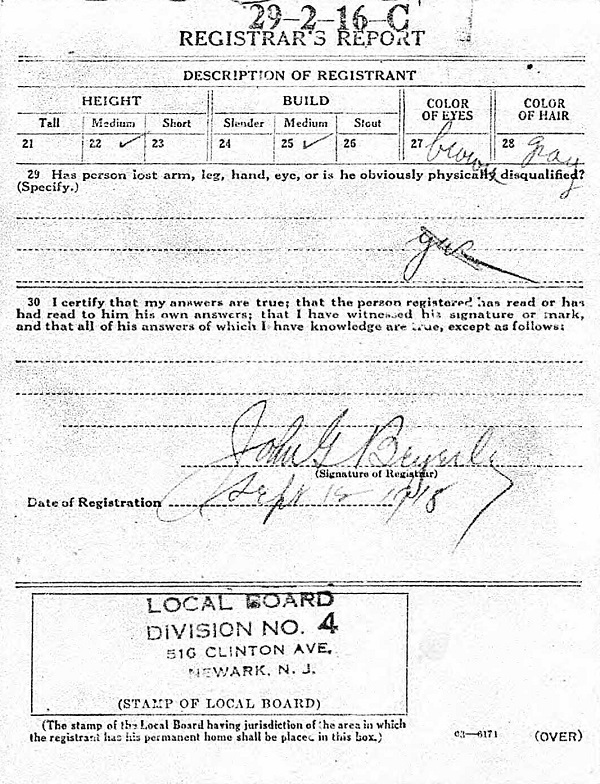 29-2-16-C
REGISTRAR'S REPORT
DESCRIPTION OF REGISTRANT
HEIGHT BUILD COLOR OF EYES COLOR OF HAIR
Tall Medium Short Slender Medium Stout
21 22 ✓ 23 24 25 ✓ 26 27 brown 28 gray
29 Has person lost arm, leg, hand, eye, or is he obviously physically disqualified?
(Specify.)
30 I certify that my answers are true; that the person registered has read or has
had read to him his own answers; that I have witnessed his signature or mark,
and that all of his answers of which I have knowledge are true, except as follows:
John G
(Signature of Registrar)
Date of Registration Sept 12 1918
LOCAL BOARD
DIVISION NO. 4
516 CLINTON AVE.
NEWARK, N. J.
(STAMP OF LOCAL BOARD)
(The stamp of the Local Board having jurisdiction of the area in which
the registrant has his permanent home shall be placed in this box.)
03—6171 (OVER)